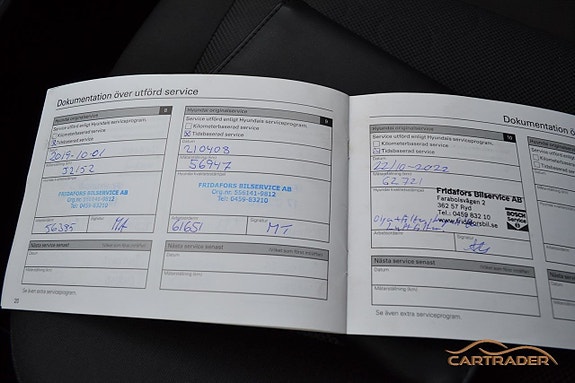 Dokumentation över utförd service
Hyundai originalservice 8
Service utförd enligt Hyundais serviceprogram.
Kilometerbaserad service
Tidsbaserad service
Datum
2019-10-01
52152
FRIDAFORS BILSERVICE AB
Org.nr: 556141-9812
Tel: 0459-83210
Signatur
56385
Nästa service senast
Datum
Mätarställning (km)
Se även extra serviceprogram.
20
Hyundai originalservice 9
Service utförd enligt Hyundais serviceprogram.
Kilometerbaserad service
Tidsbaserad service
Datum
210408
56947
FRIDAFORS BILSERVICE AB
Org.nr: 556141-9812
Tel: 0459-83210
Signatur
61651 MT
Nästa service senast
Datum
Mätarställning (km)
Dokumentation
Hyundai originalservice 10
Service utförd enligt Hyundais serviceprogram.
Kilometerbaserad service
Tidsbaserad service
Datum
22/10-2022
Fridafors Bilservice AB
Farabolsvägen 2
362 57 Ryd
Tel. 0459 832 10
BOSCH
Service
Signatur
Nästa service senast
Datum
Mätarställning (km)
Se även extra serviceprogram.
CARTRADER